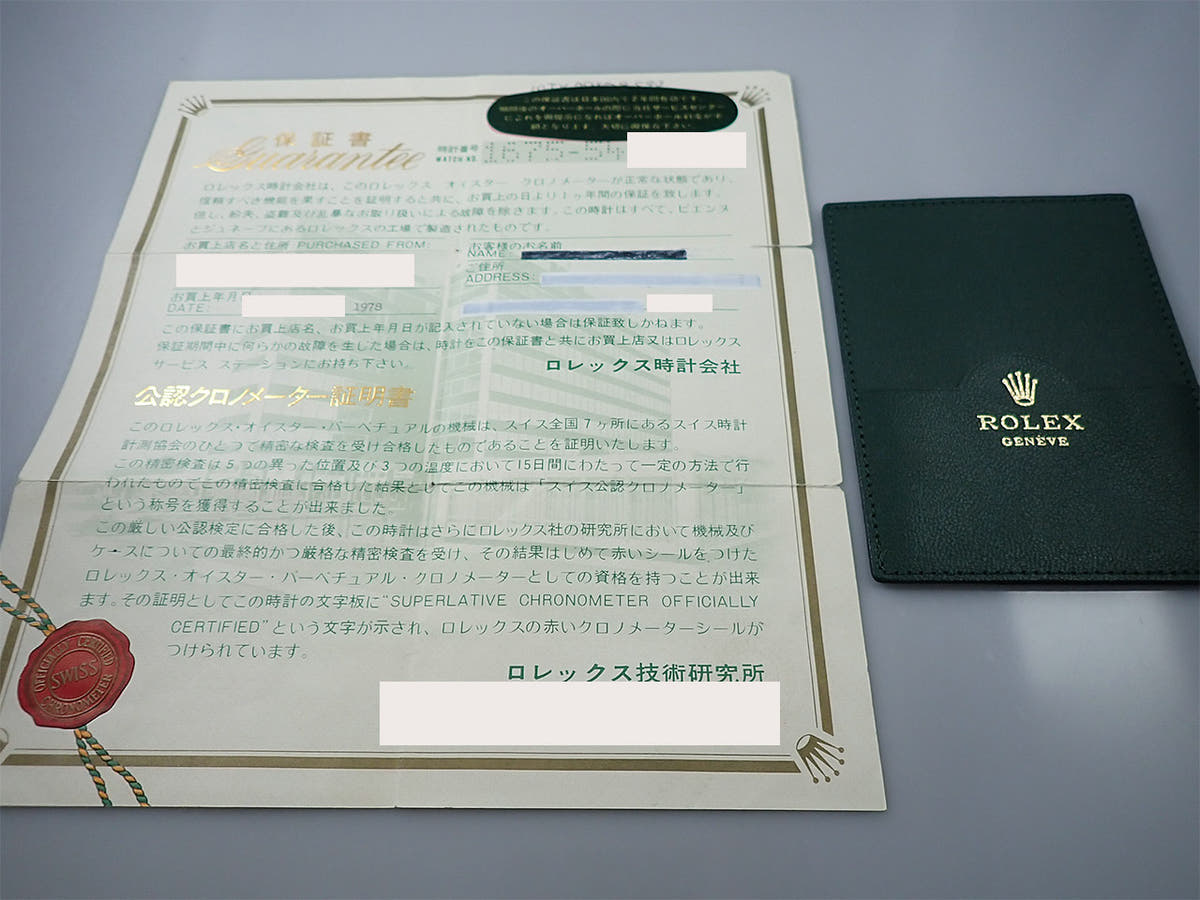 この保証書は日本国内で2年間有効です。
保証書
Guarantee
時計番号
WATCH NO.
1675-54
ロレックス時計会社は、このロレックス オイスター クロノメーターが正常な状態であり、
信頼すべき機能を果すことを証明すると共に、お買上の日より1ヶ年間の保証を致します。
但し、紛失、盗難及び乱暴なお取り扱いによる故障を除きます。この時計はすべて、ビエンヌ
とジュネーブにあるロレックスの工場で製造されたものです。
お買上店名と住所 PURCHASED FROM:
お客様のお名前
NAME:
ご住所
ADDRESS:
お買上年月日
DATE:
1978
この保証書にお買上店名、お買上年月日が記入されていない場合は保証致しかねます。
保証期間中に何らかの故障を生した場合は、時計をこの保証書と共にお買上店又はロレックス
サービス ステーションにお持ち下さい。
ロレックス時計会社
公認クロノメーター証明書
このロレックス・オイスター・パーペチュアルの機械は、スイス全国7ヶ所にあるスイス時計
計測協会のひとつで精密な検査を受け合格したものであることを証明いたします。
この精密検査は5つの異った位置及び3つの温度において15日間にわたって一定の方法で行
われたものでこの精密検査に合格した結果としてこの機械は「スイス公認クロノメーター」
という称号を獲得することが出来ました。
この厳しい公認検定に合格した後、この時計はさらにロレックス社の研究所において機械及び
ケースについての最終的かつ厳格な精密検査を受け、その結果はじめて赤いシールをつけた
ロレックス・オイスター・パーペチュアル・クロノメーターとしての資格を持つことが出来
ます。その証明としてこの時計の文字板に"SUPERLATIVE CHRONOMETER OFFICIALLY
CERTIFIED"という文字が示され、ロレックスの赤いクロノメーターシールが
つけられています。
ロレックス技術研究所
OFFICIALLY CERTIFIED
SWISS
CHRONOMETER
ROLEX
GENÈVE